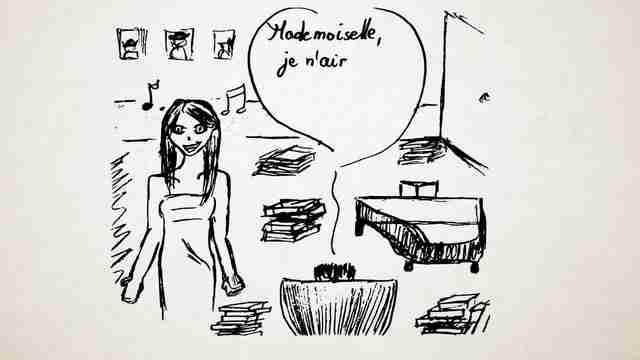 Mademoiselle,
je n'air